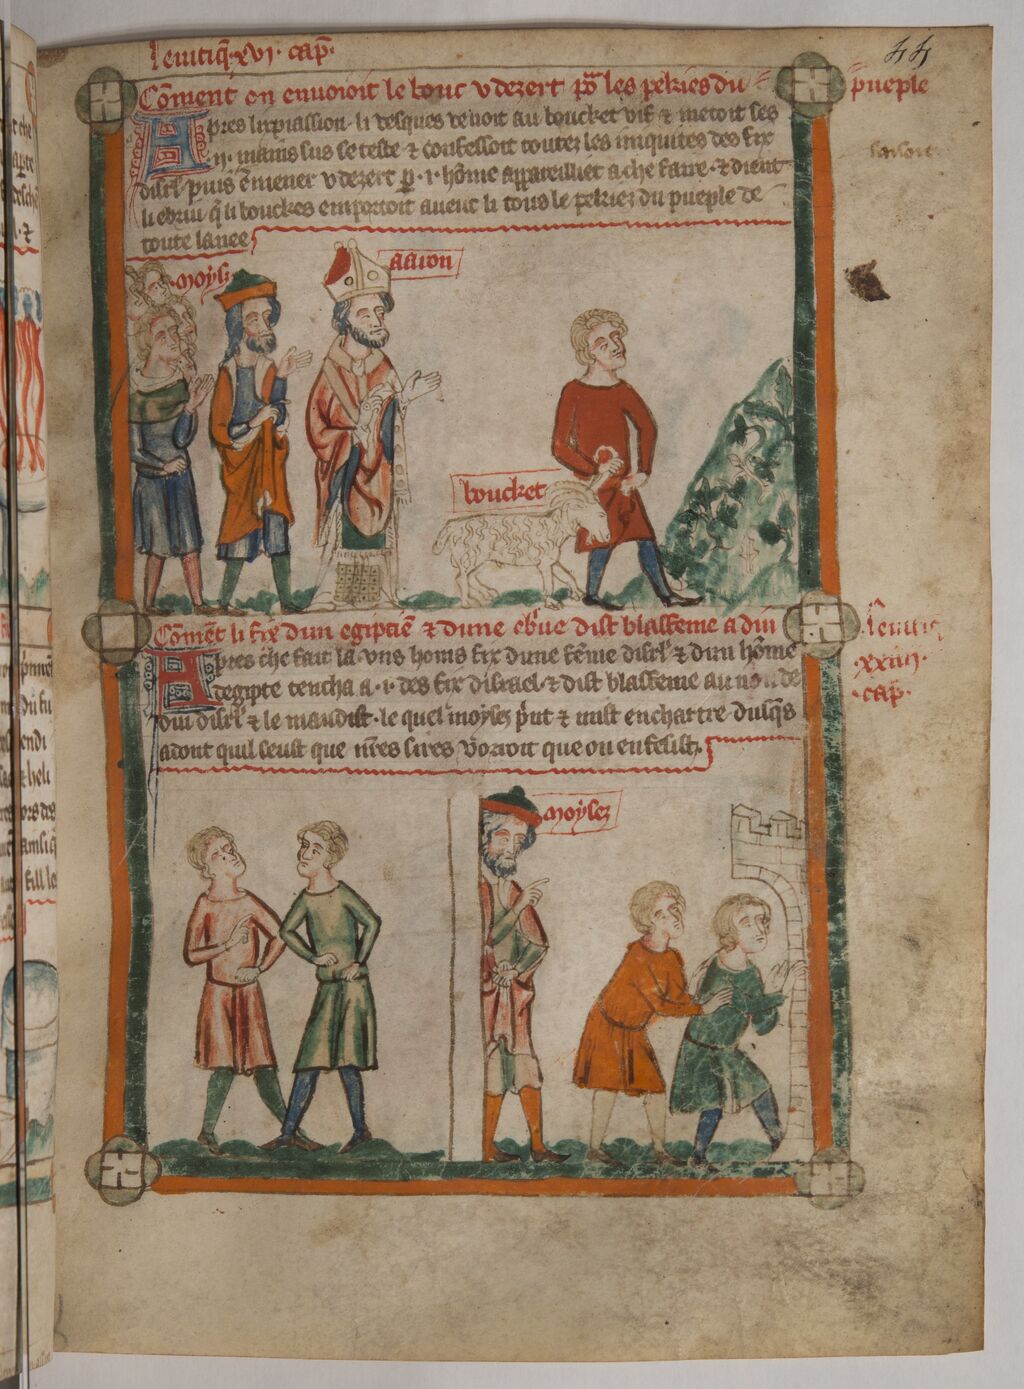 leuitiq̃·xvı· cap̃·
44
Cõment on enuoioit le bouc v dezert po᷑ les pekies du pueple
Apres lexpiassion· li vesques venoit au boucket vif ⁊ metoit ses
·ıı· mains sus se teste ⁊ confessoit toutez les iniquites des fix
disrl̃ puis ẽmener v dezert p̱ ·ı· hõme appareilliet a che faire· ⁊ dient
li ebriu q̃ li bouckes emportoit auenc li tous le pekiez du pueple de
toute lanee
moyses
aaron
boucket
Cõmẽt li fix dun egiptiẽ ⁊ dune ebr̃ue dist blasfeme a diu
leuitiq̃
·xxıııı·
·cap̃·
Apres che fait la· vns homs fix dune fẽme disrl̃ ⁊ dun hõme
degipte tencha a ·ı· des fix disrael· ⁊ dist blasfeme au non de
diu disrl̃ ⁊ le maudist· le quel moyses p̃ut ⁊ mist enchartre dusq̃s
adont quil seust que nr̃es sires vorroit que on en fesist·
moyses